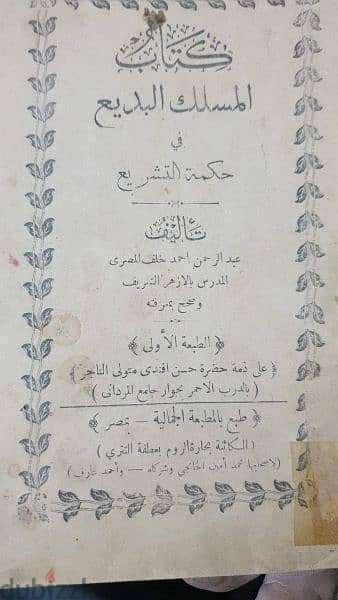 كتاب
المسلك البديع
في
حكمة التشريع
تأليف
عبد الرحمن احمد خلف المصرى
المدرس بالازهر الشريف
وصحح بمعرفته
﴿ الطبعة الأولى ﴾
﴿ على ذمة حضرة حسن افندى متولى التاجر ﴾
( بالدرب الاحمر بجوار جامع المردانى )
﴿ طبع بالمطبعة الجمالية — بمصر ﴾
( الكائنة بحارة الروم بعطفة التترى )
( لاصحابها محمد أمين الخانجى وشركاه — وأحمد عارف )
dubizzle